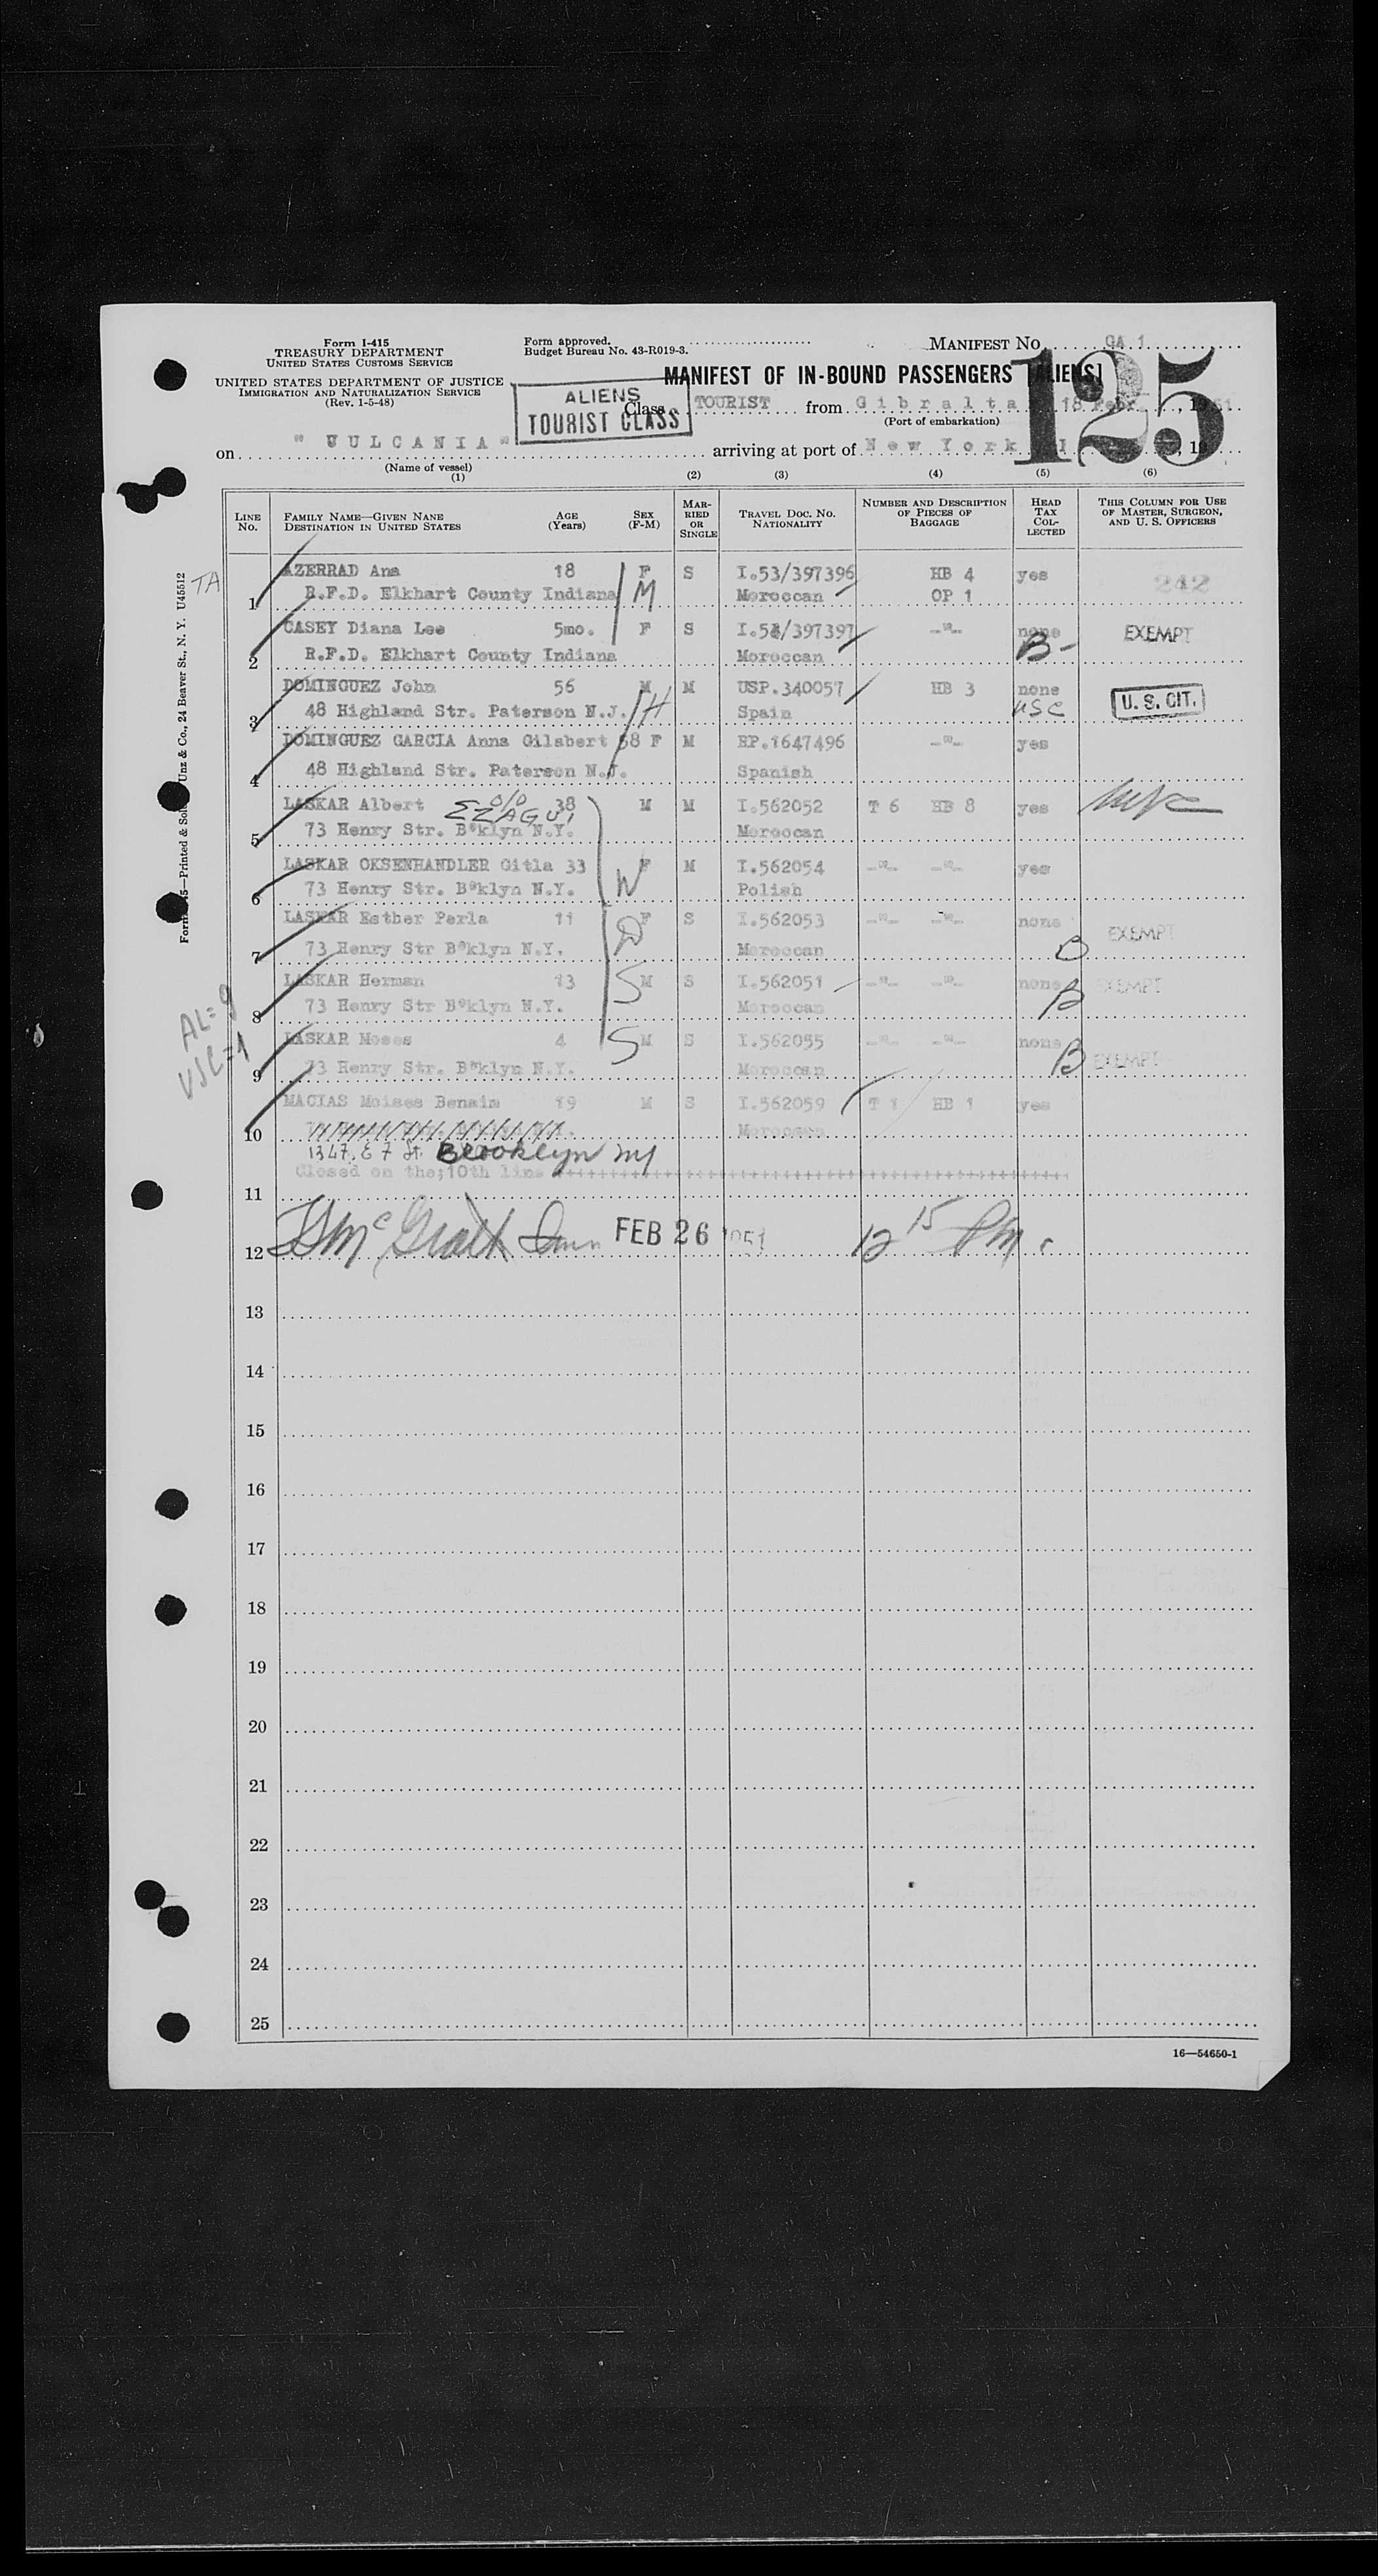 Form I-415
TREASURY DEPARTMENT
UNITED STATES CUSTOMS SERVICE
UNITED STATES DEPARTMENT OF JUSTICE
IMMIGRATION AND NATURALIZATION SERVICE
(Rev. 1-5-48)
Form approved.
Budget Bureau No. 43-R019-3.
MANIFEST No. GA 1
125
MANIFEST OF IN-BOUND PASSENGERS [ALIENS]
ALIENS
TOURIST CLASS
Class TOURIST from Gibralta 18 Febr. , 1951
(Port of embarkation)
on " VULCANIA " arriving at port of New York , 19
(Name of vessel)
(1) (2) (3) (4) (5) (6)
LINE No. FAMILY NAME—GIVEN NANE DESTINATION IN UNITED STATES AGE (Years) SEX (F-M) MARRIED OR SINGLE TRAVEL DOC. NO. NATIONALITY NUMBER AND DESCRIPTION OF PIECES OF BAGGAGE HEAD TAX COLLECTED THIS COLUMN FOR USE OF MASTER, SURGEON, AND U. S. OFFICERS
TA
AZERRAD Ana 18 F S I.53/397396 HB 4 yes 242
1 R.F.D. Elkhart County Indiana M Moroccan OP 1
CASEY Diana Lee 5mo. F S I.54/397397 -"- none EXEMPT
2 R.F.D. Elkhart County Indiana Moroccan B-
DOMINGUEZ John 56 M M USP.340057 HB 3 none U. S. CIT.
3 48 Highland Str. Paterson N.J. H Spain USC
DOMINGUEZ GARCIA Anna Gilabert 58 F M EP.1647496 -"- yes
4 48 Highland Str. Paterson N.J. Spanish
LASKAR Albert c/o EZAGUI 38 M M I.562052 T 6 HB 8 yes
5 73 Henry Str. B°klyn N.Y. Moroccan
LASKAR OKSENHANDLER Gitla 33 F M I.562054 -"- -"- yes
6 73 Henry Str. B°klyn N.Y. W Polish
LASKAR Esther Perla 11 F S I.562053 -"- -"- none EXEMPT
7 73 Henry Str B°klyn N.Y. D Moroccan B
LASKAR Herman 13 M S I.562051 -"- -"- none EXEMPT
8 73 Henry Str B°klyn N.Y. S Moroccan B
LASKAR Moses 4 M S I.562055 -"- -"- none EXEMPT
9 73 Henry Str. B°klyn N.Y. S Moroccan B
AL=9
USC=1
MACIAS Moises Benaim 19 M S I.562059 T 1 HB 1 yes
10 Moroccan
1347. E 7 St Brooklyn NY
Closed on the;10th line +++++++++++++++++++++++++++++++++++
11
12 McGrath FEB 26 1951 12 15 Pm.
13
14
15
16
17
18
19
20
21
22
23
24
25
16—54650-1
Form I-415—Printed & Sold Unz & Co., 24 Beaver St., N. Y. U45512